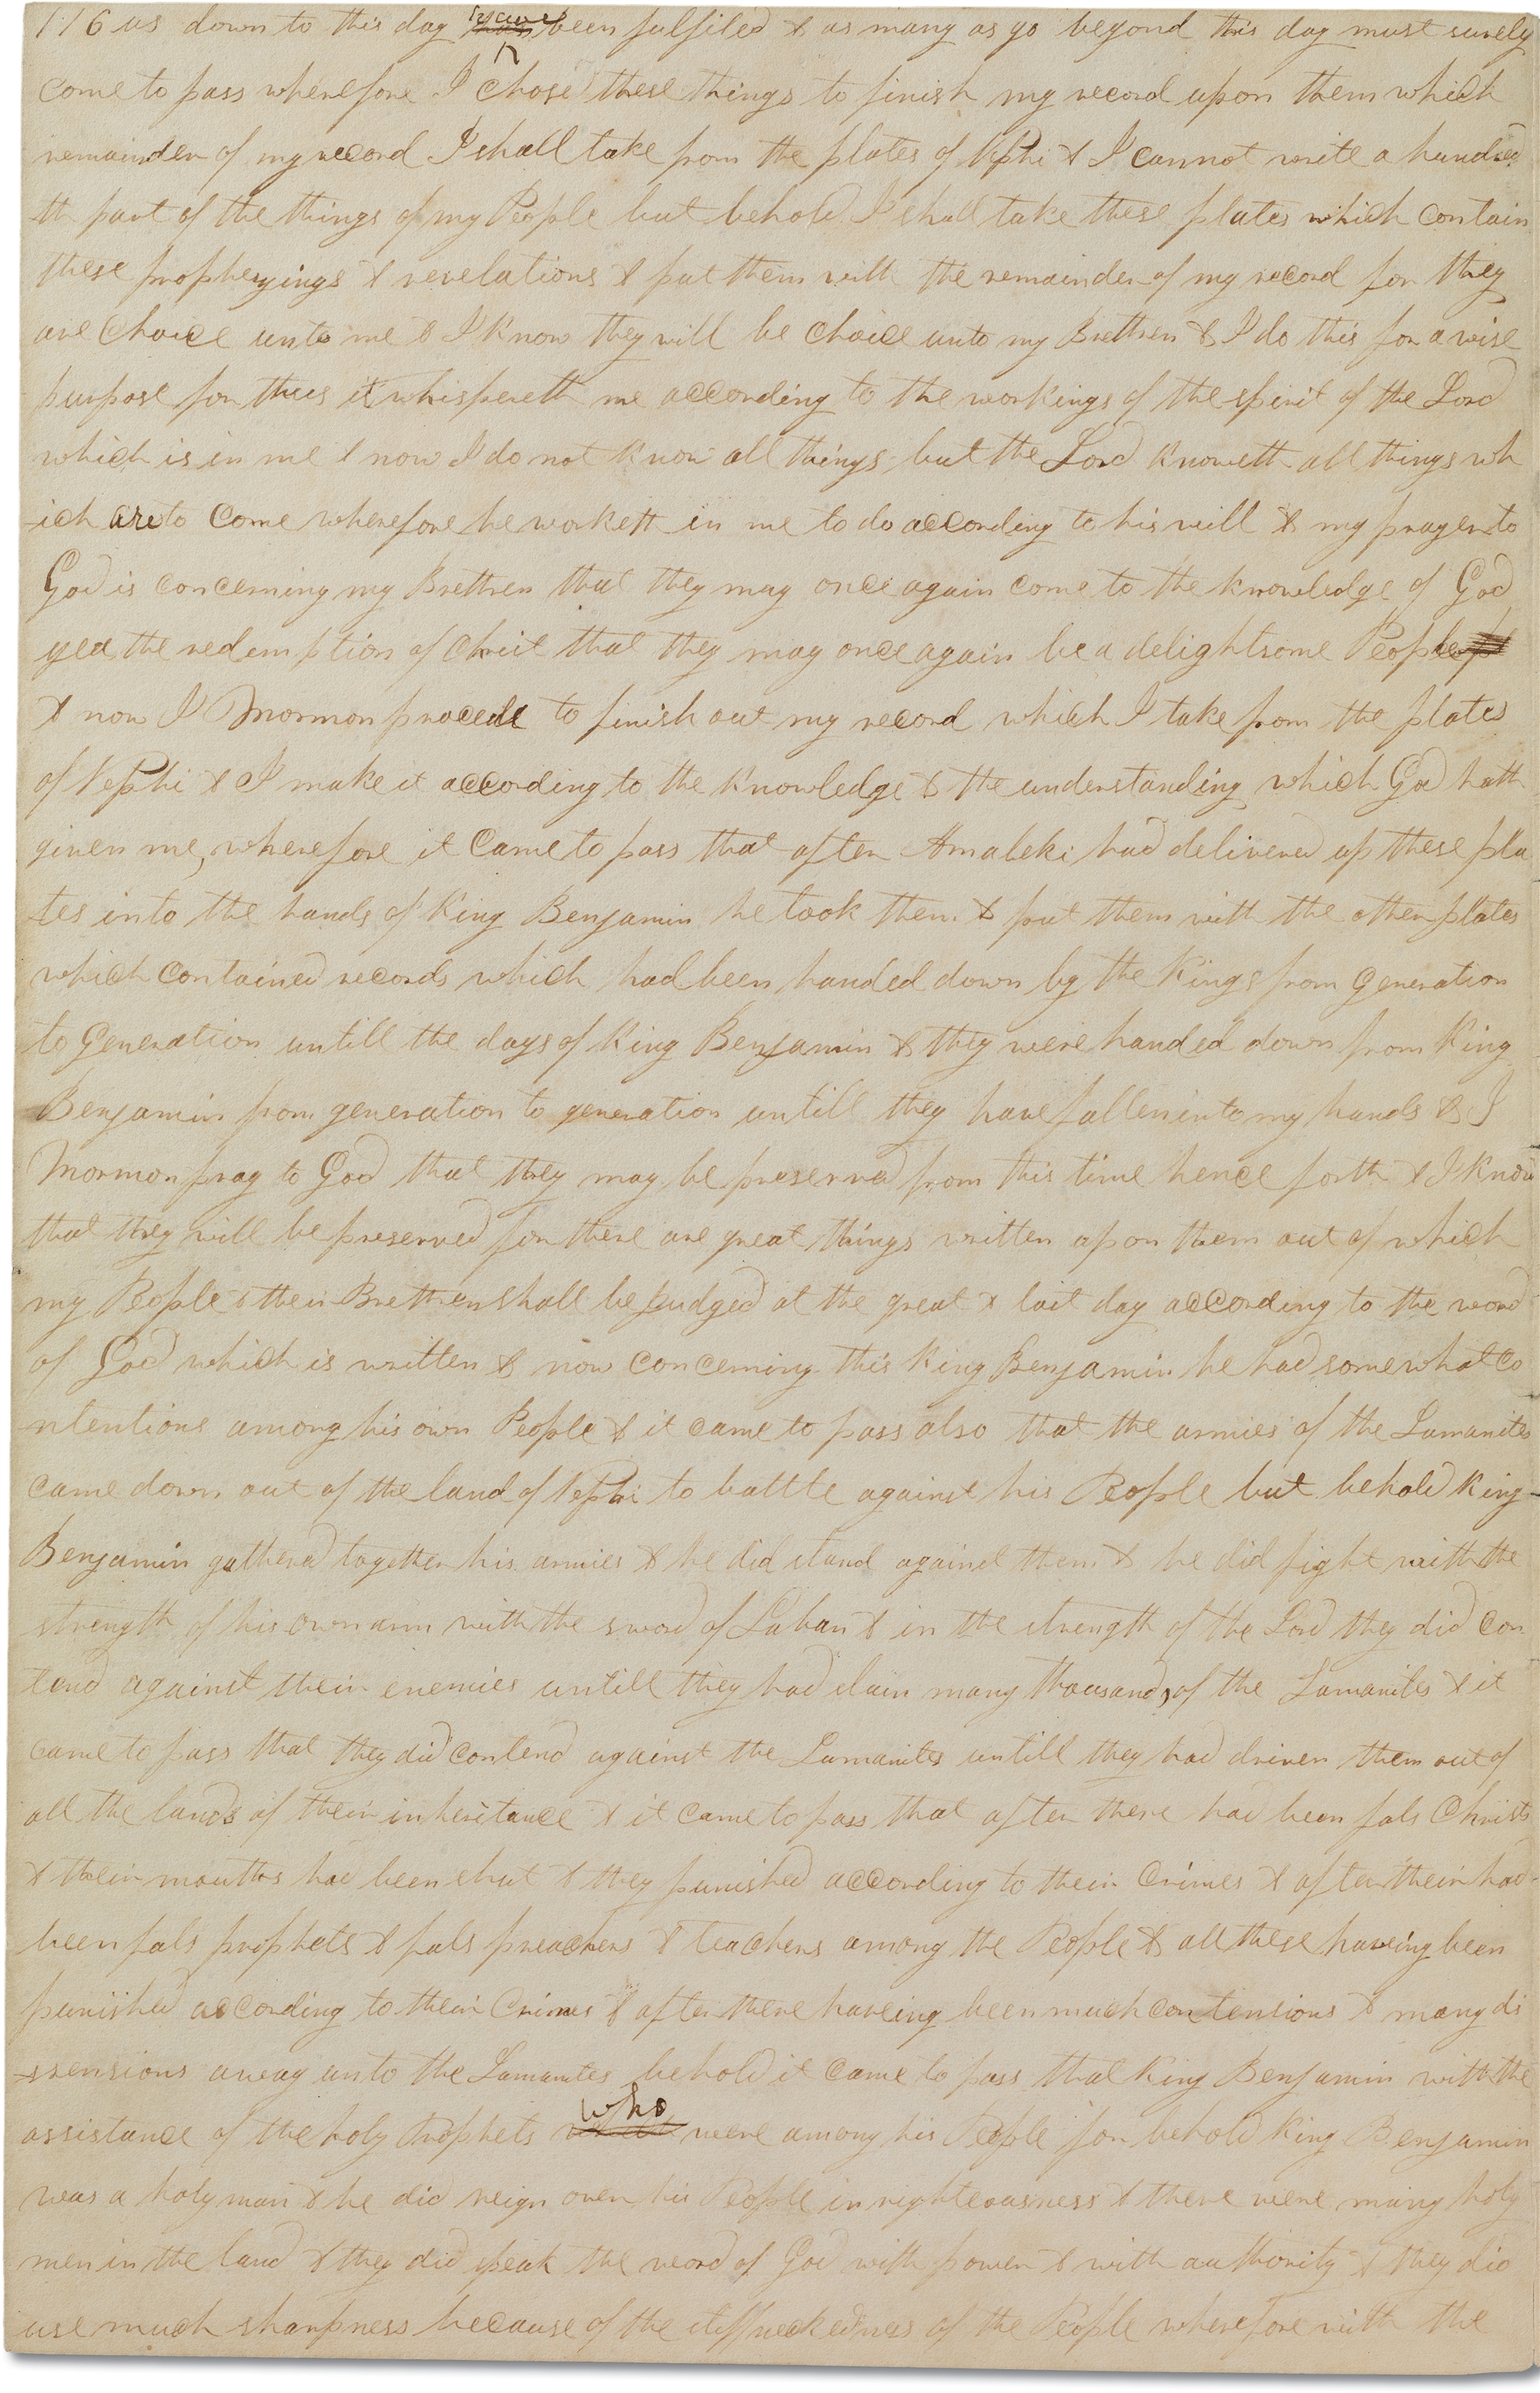 116 us down to this day have been fulfiled & as many as go beyond this day must surely
come to pass wherefore I chose these things to finish my record upon them which
remainder of my record I shall take from the plates of Nephi & I cannot write a hundred
th part of the things of my People but behold I shall take these plates which contain
these prophesyings & revelations & put them with the remainder of my record for they
are choice unto me & I know they will be choice unto my Brethren & I do this for a wise
purpose for thus it whispereth me according to the workings of the spirit of the Lord
which is in me & now I do not know all things but the Lord knoweth all things wh
-ich are to come wherefore he worketh in me to do according to his will & my prayer to
God is concerning my Brethren that they may once again come to the knowledge of God
yea the redemption of Christ that they may once again be a delightsome People
& now I Mormon procede to finish out my record which I take from the plates
of Nephi & I make it according to the knowledge & the understanding which God hath
given me, wherefore it came to pass that after Amaleki had delivered up these pla
-tes into the hands of King Benjamin he took them & put them with the other plates
which contained records which had been handed down by the Kings from generation
to generation untill the days of King Benjamin & they were handed down from King
Benjamin from generation to generation untill they have fallen into my hands & I
Mormon pray to God that they may be preserved from this time hence forth & I know
that they will be preserved for there are great things written upon them out of which
my People & their Brethren shall be judged at the great & last day according to the word
of God which is written & now concerning this King Benjamin he had somewhat co
-ntentions among his own People & it came to pass also that the armies of the Lamanites
came down out of the land of Nephi to battle against his People but behold King
Benjamin gathered together his armies & he did stand against them & he did fight with the
strength of his own arm with the sword of Laban & in the strength of the Lord they did con
tend against their enemies untill they had slain many thousands of the Lamanites & it
came to pass that they did contend against the Lamanites untill they had driven them out of
all the lands of their inheritance & it came to pass that after there had been fals Christs
& their mouths had been shut & they punished according to their crimes & after their had
been fals prophets & fals preachers & teachers among the People & all these having been
punished according to their crimes & after there haveing been much contensions & many di
-ssensions away unto the Lamanites behold it came to pass that King Benjamin with the
assistance of the holy Prophets who were among his People for behold King Benjamin
was a holy man & he did reign over his People in righteousness & there were many holy
men in the land & they did speak the word of God with power & with authority & they did
use much sharpness because of the stiffneckedness of the People wherefore with the